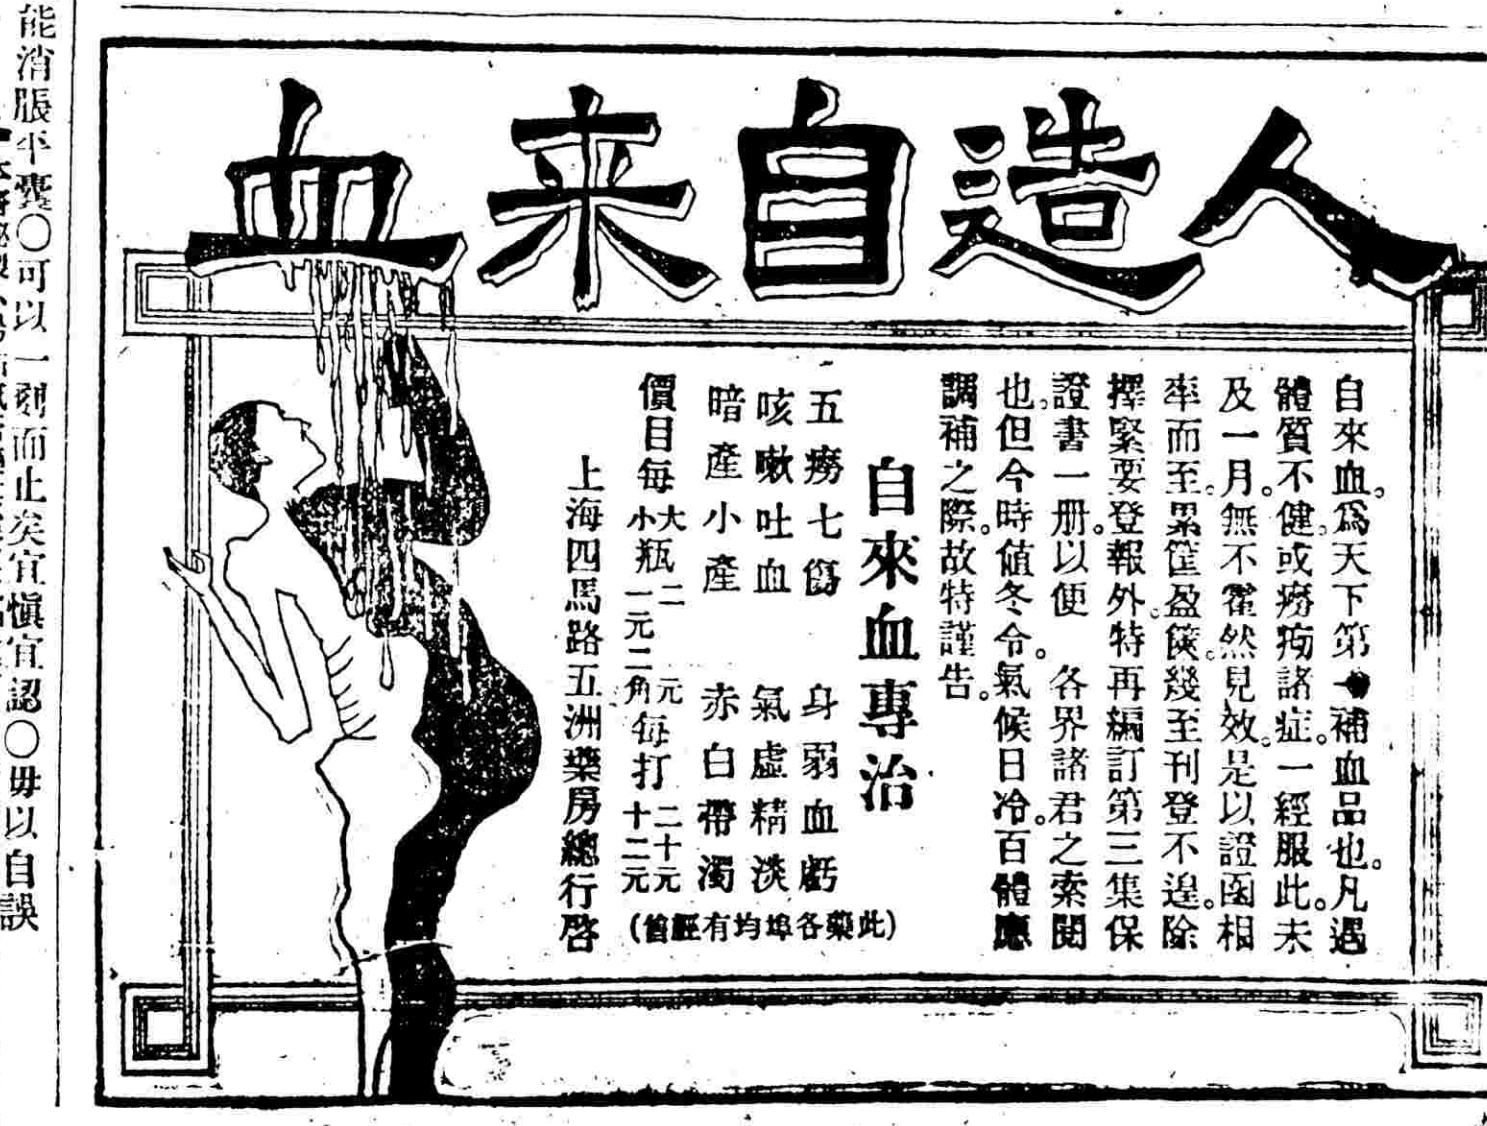 人造自来血
自來血。爲天下第一補血品也。凡遇
體質不健。或癆病諸症。一經服此。未
及一月。無不霍然見效。是以證函相
率而至。累筐盈篋。幾至刊登不遑。除
擇緊要登報外。特再編訂第三集保
證書一册。以便 各界諸君之索閱
也。但今時値冬令。氣候日冷。百體應
調補之際。故特謹告。
自來血專治
五癆七傷 身弱血虧
咳嗽吐血 氣虛精淡
暗產小產 赤白帶濁
價目每大瓶二元每打二十元
小 一元二角 十二元
(此藥各埠均有經售)
上海四馬路五洲藥房總行啓
能消脹平囊〇可以一剳而止矣宜愼宜認〇毋以自誤